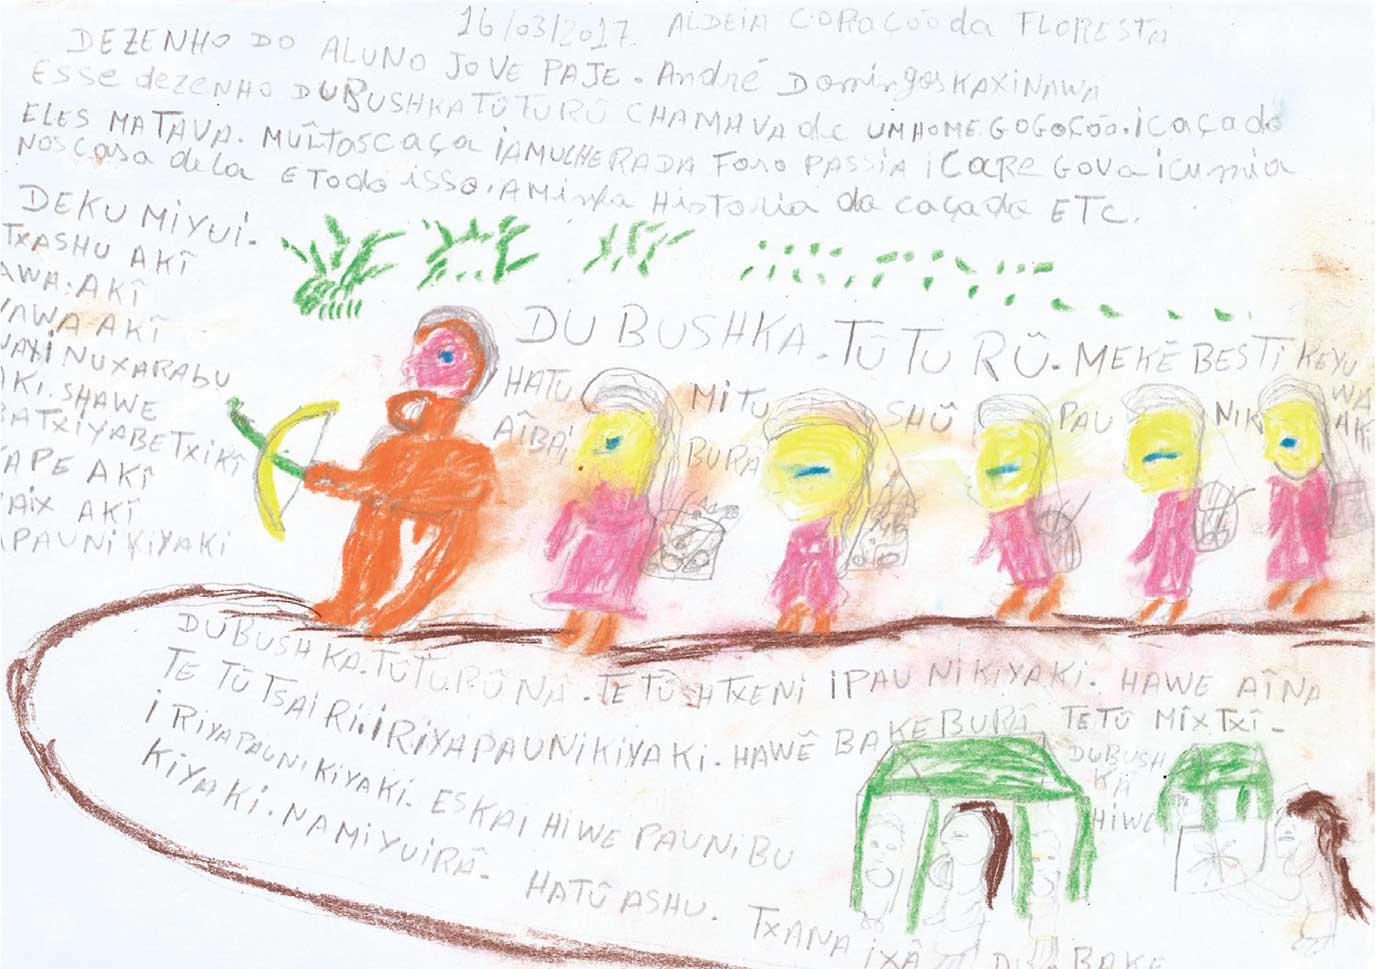 16/03/2017. ALDEIA CORAÇÃO da FLORESTA
DEZENHO DO ALUNO JOVE PAJE. André Domingos KAXINAWA
ESSE dezENHO DUBUSHKA TÛTURÛ CHAMAVA de UM HOME GOGOÇÃO. i CAÇADO
ELES MATAVA. MUÎTAS CAÇA i AMULHERADA FORO PASSIA i CARREGOVA i CUMIA
NOS CASA dela E Todo isso. A Minha Historia da caçada ETC.
DEKU MiYUi.
TXASHU AKÎ
AWA. AKÎ
YAWA AKÎ
NUXARABU
AKI. SHAWE
BATXIYABETXIKÎ
KAPE AKÎ
AKÎ
PAUNIKIYAKI
DUBUSHKA. TÛTURÛ. MEKÊ BESTI KEYU
HATU MITU SHÛ PAU NIK WA
AÎBAI BURA AKI
DUBUSHKA. TÛTURÛNÃ. TETÛSHTXENI IPAUNIKIYAKI. HAWE AÎNA
TE TÛTSAIRIIIRIYAPAUNIKIYAKI. HAWÊ BAKEBURÃ TETÛ MÎXTXÎ-
IRIYAPAUNIKIYAKI. ESKAI HIWEPAUNIBU
KIYAKI. NA MIYUIRÃ. HATÛ ASHU.
TXANA IXÃ DUA BAKE
DUBUSH
KÃ
HIWE